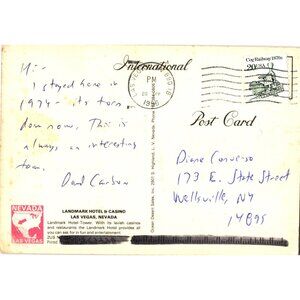 International
Cog Railway 1870s
PM
1990
Post Card
Hi -
I stayed here in
1974 - its torn
down now. This is
always an interesting
town.
Diane
173 E. State Street
Wellsville, NY
14895
LANDMARK HOTEL & CASINO
LAS VEGAS, NEVADA
Landmark Hotel Tower. With its lavish casinos
and restaurants the Landmark Hotel provides all
you can ask for in fun and entertainment.
NEVADA
LAS VEGAS